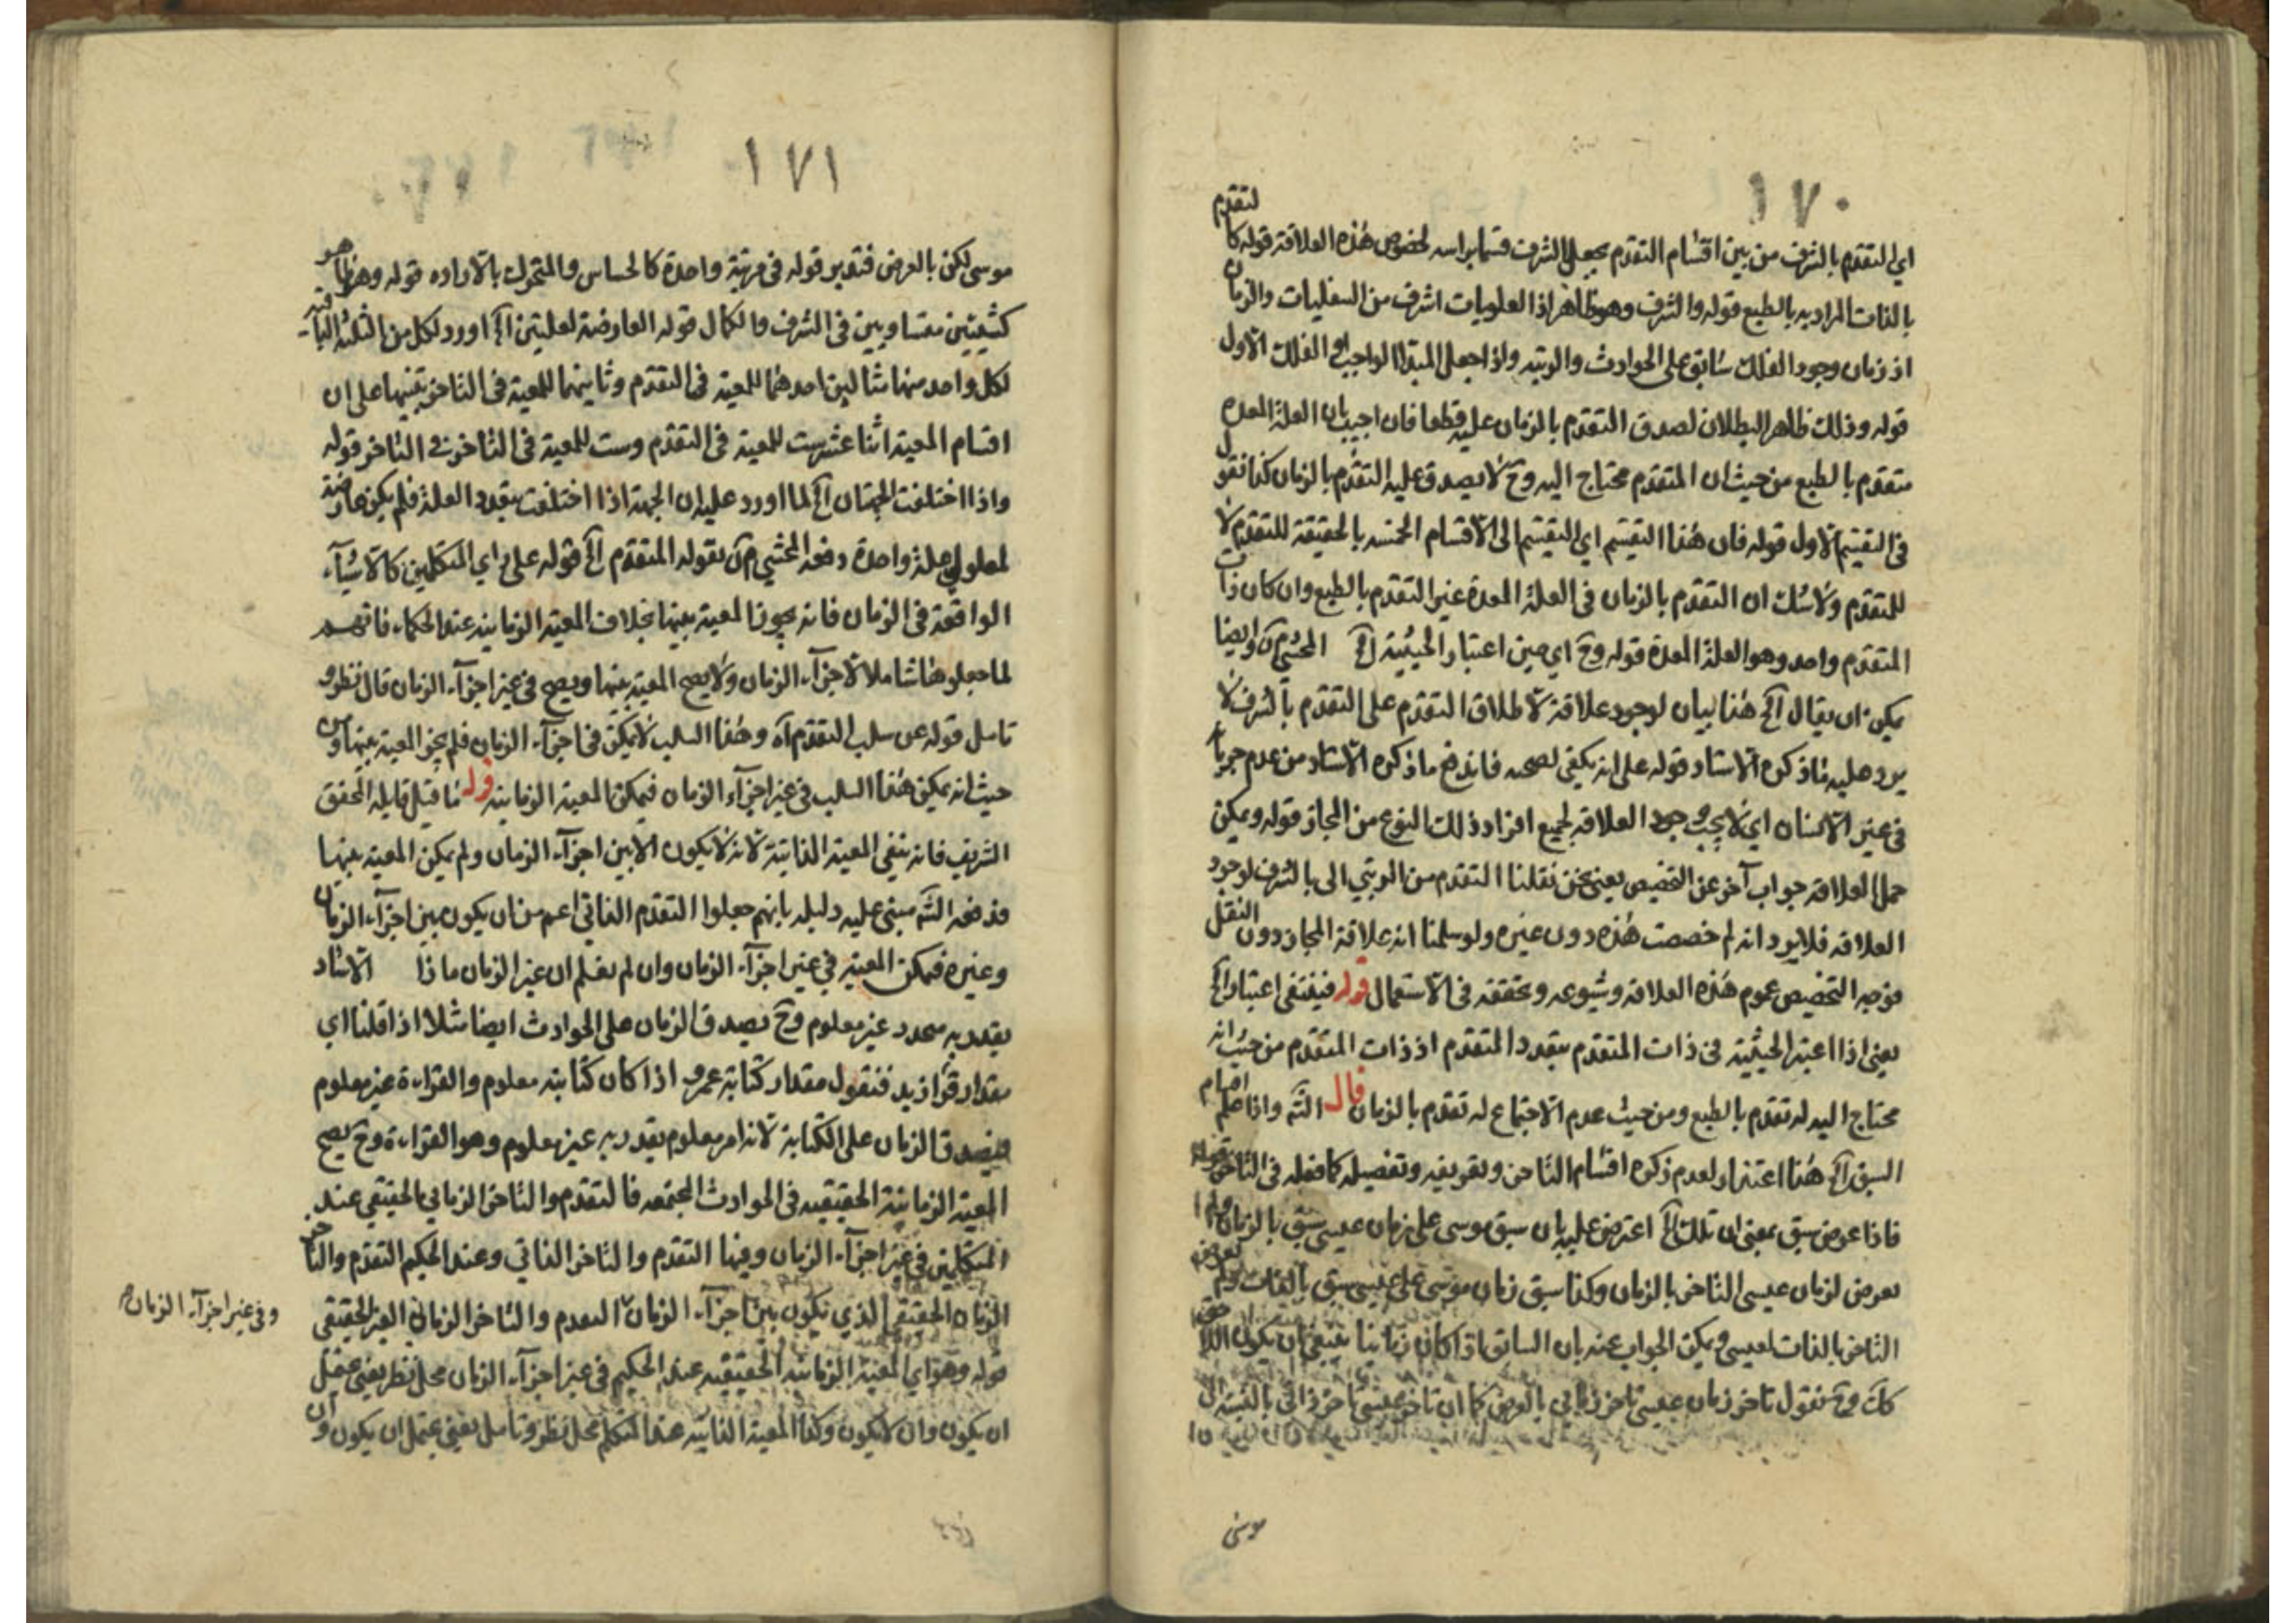 ١٧٠
اي التقدم بالشرف من بين اقسام التقدم بجعل الشرف قسما براسه لخصوص هذه العلاقة قوله كالتقدم
بالذات المراد به بالطبع قوله والشرف وهو ظاهر اذ العلويات اشرف من السفليات والزمان
اذ زمان وجود الفلك سابق على الحوادث والرتبه واذا جعل المبتدا الواجب او الفلك الاول
قوله وذلك ظاهر البطلان لصدق التقدم بالزمان عليه قطعا فان اجيب بان العلة المعدة
متقدم بالطبع من حيث ان المتقدم محتاج اليه وح لا يصدق عليه التقدم بالزمان كذا نقول
في التقسيم الاول قوله فان هذا التقسيم اي التقسيم الى الاقسام الخمسه بالحقيقة للتقدم لا
للمتقدم ولا شك ان التقدم بالزمان في العلة المعدة غير التقدم بالطبع وان كان ذات
المتقدم واحد وهو العلة المعدة قوله وح اي حين اعتبار الحيثية الخ المحشي وايضا
يمكن ان يقال الخ هذا بيان لوجود علاقة لاطلاق التقدم على التقدم بالشرف لا
يرد عليه ما ذكره الاستاد قوله على انه يكفي لصحه فاندفع ما ذكره الاستاد من عدم جريا
في غير الانسان اي لا يجب وجود العلاقه لجميع افراد ذلك النوع من المجاز قوله ويمكن
حمل العلاقه جواب آخر عن التخصيص يعني نحن نقلنا التقدم من الرتبي الى بالشرف لوجود
العلاقه فلا يرد انه لم خصصت هذه دون غيره ولو سلمنا انه علاقة المجاز دون النقل
فوجه التخصيص عموم هذه العلاقه وشيوعه وتحققه في الاستعمال قوله فيقتضي اعتبار الخ
يعني اذا اعتبر الحيثية في ذات المتقدم يتعدد المتقدم اذ ذات المتقدم من حيث انه
محتاج اليه له تقدم بالطبع ومن حيث عدم الاجتماع له تقدم بالزمان قال الش واذا علم اقسام
السبق الخ هذا اعتذار لعدم ذكره اقسام التاخر وتعريفه وتفصيله كما فعله في التاخر قوله
فاذا عرض سبق بمعنى ان تلك الخ اعترض عليه بان سبق موسى على زمان عيسى سبق بالزمان ولم
يعرض لزمان عيسى التاخر بالزمان وكذا سبق زمان موسى على عيسى سبق بالذات ولم يعرض
التاخر بالذات لعيسى ويمكن الجواب عنه بان السابق اذا كان زمانيا ينبغي ان يكون اللاحق
كك وح نقول تاخر زمان عيسى تاخر زماني بالعرض كما ان تاخر عيسى تاخر ذاتي بالنسبة الى
موسى
١٧١
موسى لكن بالعرض فتدبر قوله في مرتبة واحدة كالحساس والمتحرك بالاراده قوله وهو ظاهر
كشيئين متساويين في الشرف والكمال قوله العارضة لعلتين الخ اورد لكل من الثلثة الباقية
لكل واحد منها مثالين احدهما للمعية في التقدم وثانيهما للمعية في التاخر تنبيها على ان
اقسام المعية اثنا عشر ست للمعية في التقدم وست للمعية في التاخر في التاخر قوله
واذا اختلفت الجهتان الخ لما اورد عليه ان الجهة اذا اختلفت بتعدد العلة فلم يكن عارضة
لمعلولي علة واحدة دفعه المحشي بقوله المتقدم الخ قوله على راي المتكلمين كالاشياء
الواقعة في الزمان فانه يجوز المعية بينها بخلاف المعية الزمانيه عند الحكماء فافهم
لما جعلوها شاملا لاجزاء الزمان ولا يصح المعية بينها ويصح في غير اجزاء الزمان قال نظر و
تامل قوله عن سلب التقدم آه وهذا السلب لا يمكن في اجزاء الزمان فلم يجز المعية بينها ومن
حيث انه يمكن هذا السلب في غير اجزاء الزمان فيمكن المعية الزمانيه قوله ما قيل قايله المحقق
الشريف فانه ينفي المعية الذاتية لانه لا يكون الا بين اجزاء الزمان ولم يمكن المعية بينها
فدفعه الش مبني عليه دليله بانهم جعلوا التقدم الذاتي اعم من ان يكون بين اجزاء الزمان
وغيره فيمكن المعية في غير اجزاء الزمان وان لم يعلم ان غير الزمان ماذا الاستاد
يقدر به متجدد غير معلوم وح يصدق الزمان على الحوادث ايضا مثلا اذا قلنا اي
مقدار قرا زيد فنقول مقدار كتابة عمرو اذا كان كتابته معلوم والقراءة غير معلوم
فيصدق الزمان على الكتابة لانه امر معلوم يقدر به غير معلوم وهو القراءة وح يصح
المعية الزمانية الحقيقيه في الحوادث المجتمعه فالتقدم والتاخر الزماني الحقيقي عند
المتكلمين في غير اجزاء الزمان وفيها التقدم والتاخر الذاتي وعند الحكيم التقدم والتاخر
الزماني الحقيقي الذي يكون بين اجزاء الزمان التقدم والتاخر الزماني الغير الحقيقي
وفي غير اجزاء الزمان
قوله وهو اي المعية الزمانيه الحقيقيه عند الحكيم في غير اجزاء الزمان محل نظر يعني يحتمل
ان يكون وان لا يكون وكذا المعية الذاتيه عند المتكلم محل نظر وتامل يعني يحتمل ان يكون وان